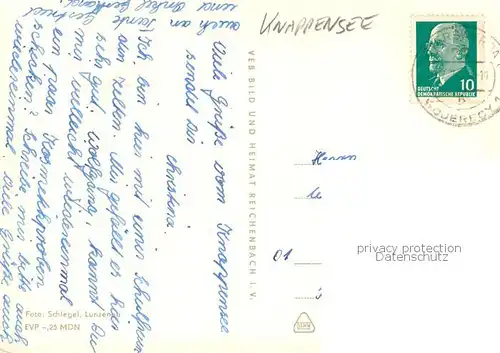 KNAPPENSEE
DEUTSCHE
DEMOKRATISCHE REPUBLIK
10
Viele Grüße vom Knappensee
sendet Dir
Christina
Ich bin hier mit einer
am zelten. Mir gefällt es hier
sehr gut. Wolfgang, kannst Du
mir vielleicht wiedereinmal
ein paar Kosmetikproben
schicken? Schreibe mir bitte auch
wiedereinmal. Viele Grüße auch
auch an Tante
und Onkel
VEB BILD UND HEIMAT REICHENBACH I. V.
Foto: Schlegel, Lunzen
EVP -,25 MDN
Herrn
01
privacy protection
Datenschutz